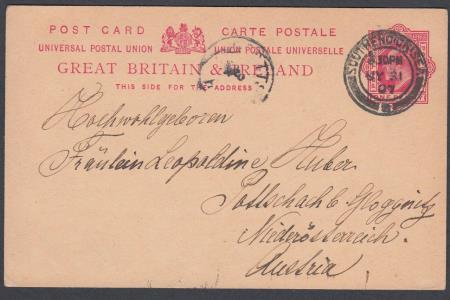 POST CARD CARTE POSTALE
UNIVERSAL POSTAL UNION UNION POSTALE UNIVERSELLE
GREAT BRITAIN & IRELAND
THIS SIDE FOR THE ADDRESS
SOUTHEND-ON-SEA
8.30PM
MY 31
07
Hochwohlgeboren
Fräulein Leopoldine Huber
Pottschach b. Gloggnitz
Niederösterreich.
Austria